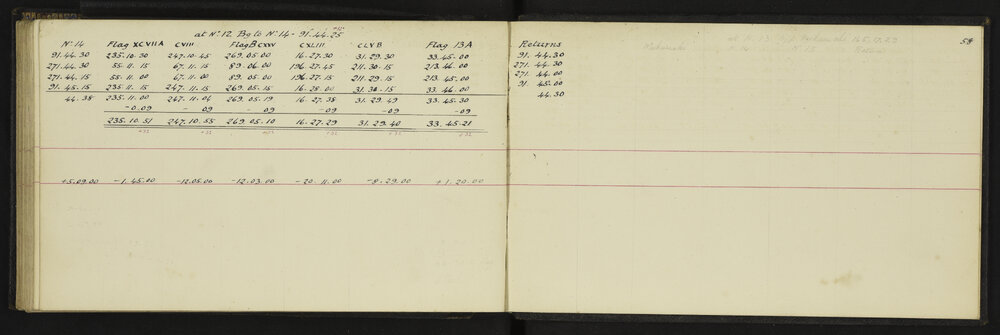 at No 12 Bg to No 14 - 91.44.25
No 14 Flag XCVIIA CVIII Flag B CXXV CXLIII CLVB Flag 13A
91.44.30 235.10.30 247.10.45 269.05.00 16.27.30 31.29.30 33.45.00
271.44.30 55.11.15 67.11.15 89.06.00 196.27.45 211.30.15 213.46.00
271.44.15 55.11.00 67.11.00 89.05.00 196.27.15 211.29.15 213.45.00
91.45.15 235.11.15 247.11.15 269.05.15 16.28.00 31.30.15 33.46.00
44.38 235.11.00 247.11.04 269.05.19 16.27.38 31.29.49 33.45.30
-0.09 -09 -09 -09 -09 -09
235.10.51 247.10.55 269.05.10 16.27.29 31.29.40 33.45.21
+5.09.00 -1.45.00 -12.05.00 -12.03.00 -20.11.00 -8.29.00 +1.20.00
Returns
91.44.30
271.44.30
271.44.00
91.45.00
44.30
58